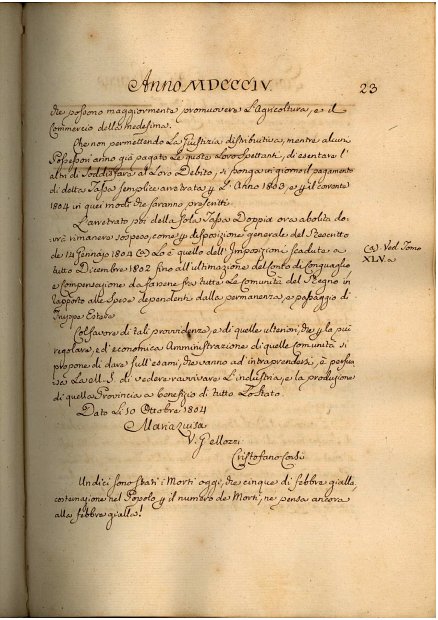 Anno MDCCCIV
23
che possono maggiormente promuovere l'Agricoltura, e il
Commercio della medesima.
Che non permettendo la Giustizia distributiva, mentre alcuni
Possessori anno già pagato le quote loro spettanti, di esentare l'
altri di soddisfare al loro Debito, si ponga in giorno il pagamento
di detta Tassa semplice arretrata y l'Anno 1803, e y il corrente
1804 in quei modi che saranno prescritti.
L'arretrato poi della sola Tassa Doppia ora abolita do-
vrà rimanere sospeso, come y disposizione generale del Rescritto
de 14 Gennajo 1804 (a) Lo è quello dell'Imposizioni scadute a
tutto Dicembre 1802 fino all'ultimazione del Conto di Conguaglio
e compensazione da farsene fra tutte le Comunità del Regno in
rapporto alle spese dependenti dalla permanenza, e passaggio di
Truppe Estere
(a) Ved. Tomo
XLV. a
Col favore di tali provvidenze, e di quelle ulteriori, che y la più
regolare, ed economica Amministrazione di quelle Comunità si
propone di dare sull'esami, che vanno ad intraprendersi, è persua-
sa La M. S. di vedere ravvivare l'industria, e la produzione
di quella Provincia a benefizio di tutto lo Stato.
Dato li 30 Ottobre 1804
Maria Luisa
V. Gellozzi
Cristofano Corsi
Undici sono stati i Morti oggi, che cinque di febbre gialla,
costernazione nel Popolo y il numero de Morti, ne pensa ancora
alla febbre gialla!